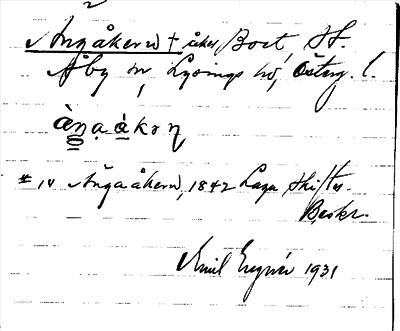 2
Ångåkern + åker, Bort, Sk.
Åby sn, Lysings hd, Östng. l.
àŋaákoṇ
# 14 Ånga åkern, 1842 Laga Skiftes
Beskr.
Emil 1931